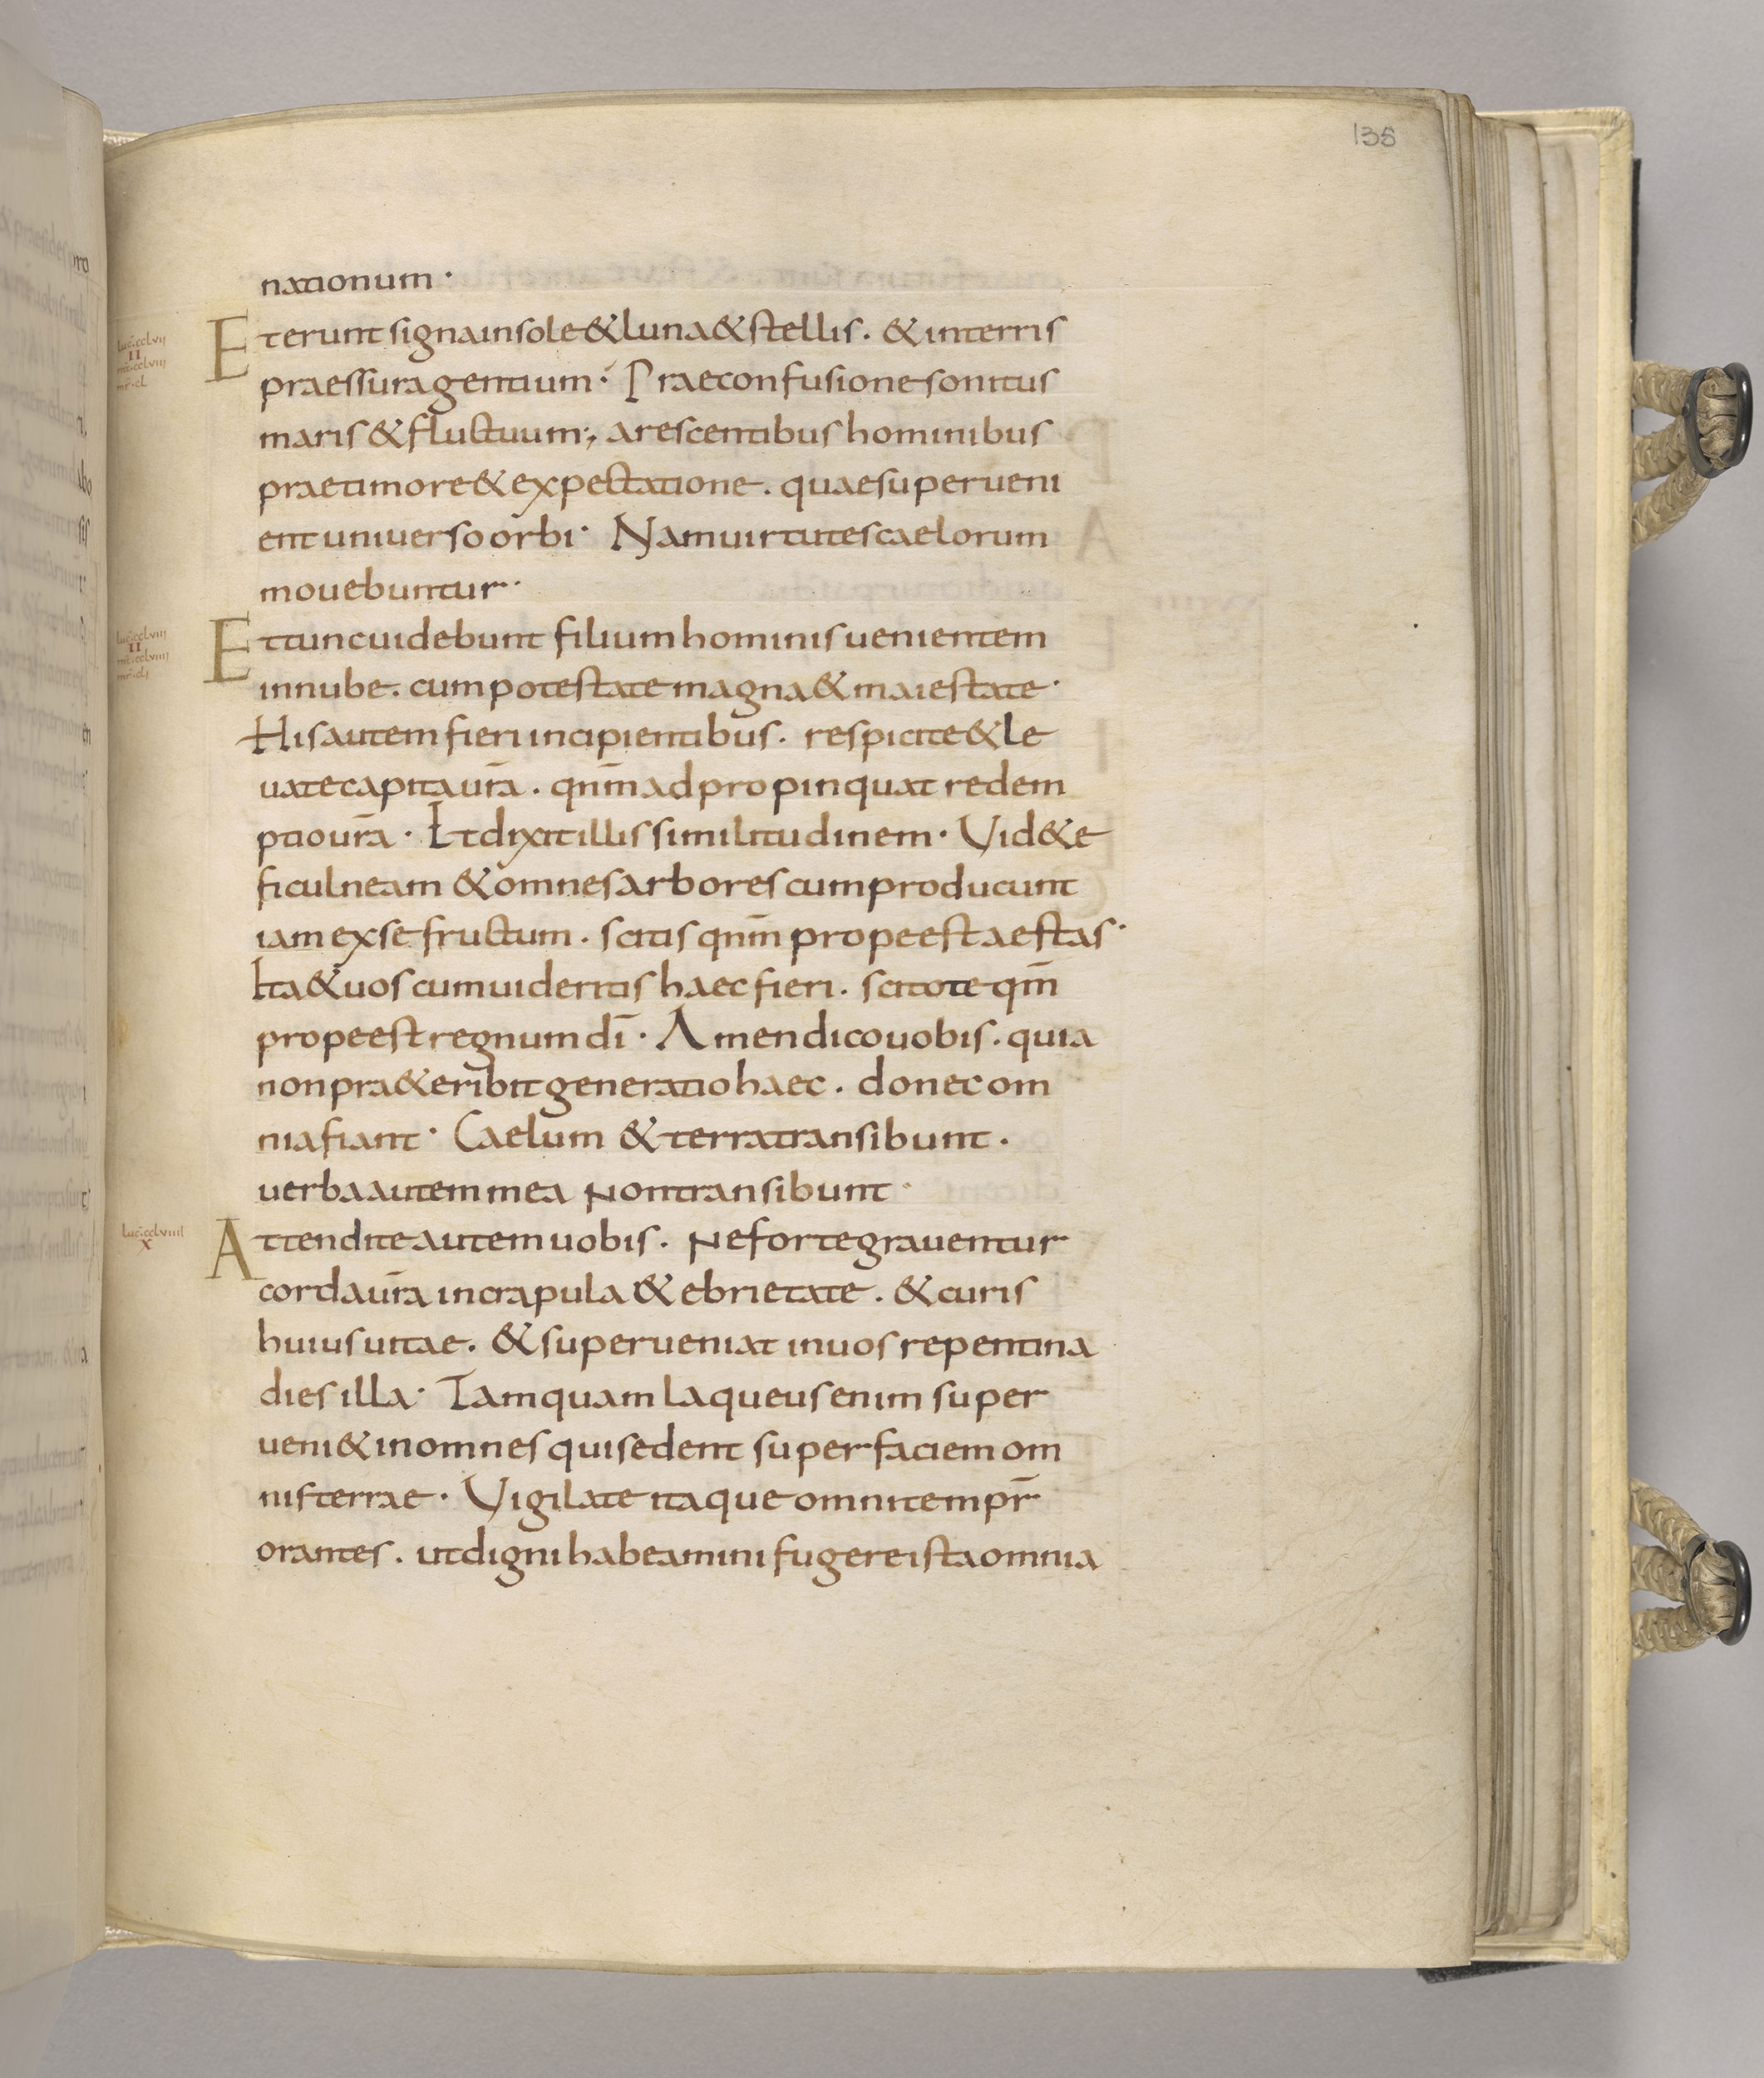 135
nationum·
Et erunt signa in sole & luna & stellis. & in terris
praessura gentium· Prae confusione sonitus
maris & fluctuum; arescentibus hominibus
prae timore & expectatione. quae superueni
ent uniuerso orbi· Nam uirtutes caelorum
mouebuntur·
Et tunc uidebunt filium hominis uenientem
in nube. cum potestate magna & maiestate·
His autem fieri incipientibus. respicite & le
uate capita ur̄a. qnm̄ adpropinquat redem
ptio ur̄a· Et dixit illis similitudinem· Uid&e
ficulneam & omnes arbores cum producunt
iam ex se fructum. scitis qnm̄ prope est aestas·
Ita & uos cum uideritis haec fieri. scitote qm̄
prope est regnum dī· Amen dico uobis. quia
non pra&eribit generatio haec. donec om
nia fiant· Caelum & terra transibunt.
uerba autem mea Non transibunt·
Attendite autem uobis. Ne forte grauentur
corda ur̄a in crapula & ebrietate. & curis
huius uitae. & superueniat in uos repentina
dies illa· Tamquam laqueus enim super
ueni& in omnes qui sedent super faciem om
nis terrae· Uigilate itaque omni tempr̄
orantes. ut digni habeamini fugere ista omnia
luc·cclvii
II
mt·cclviii
mr·cl
luc·cclviii
II
mt·cclviiii
mr·cli
luc·cclviiii
X